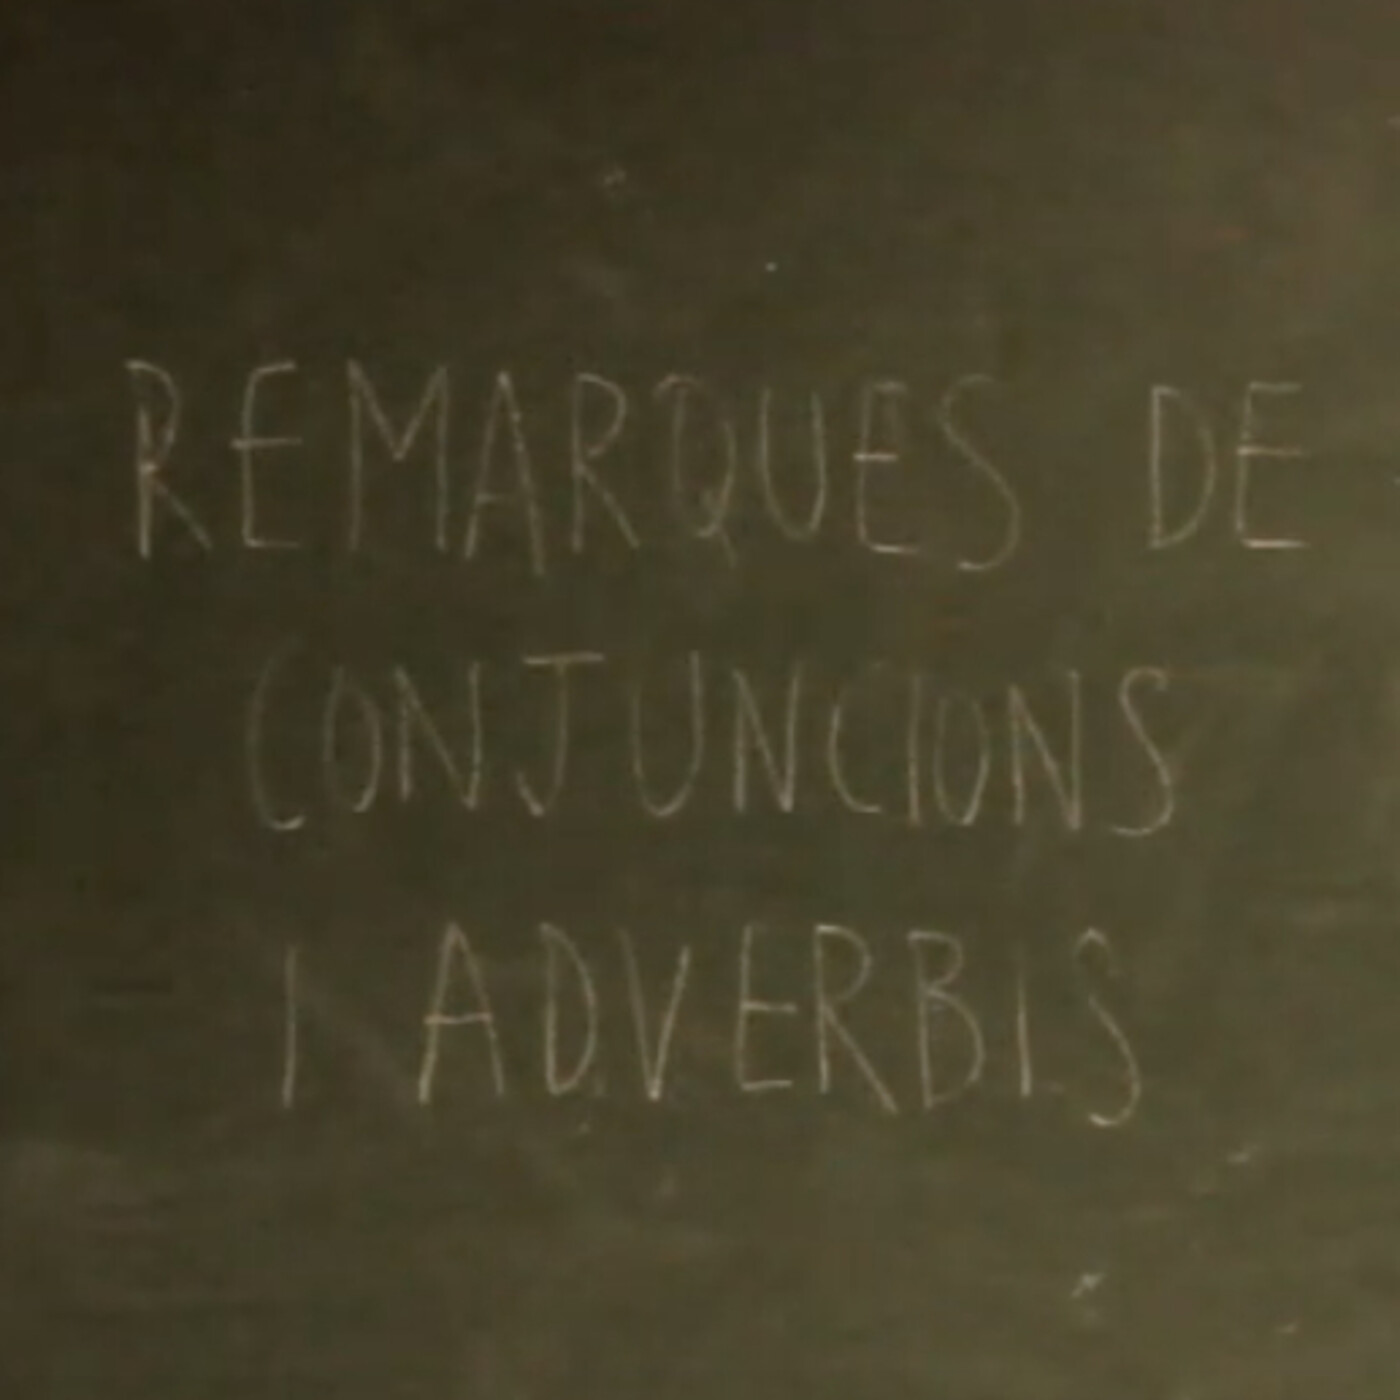 REMARQUES DE
CONJUNCIONS
I ADVERBIS